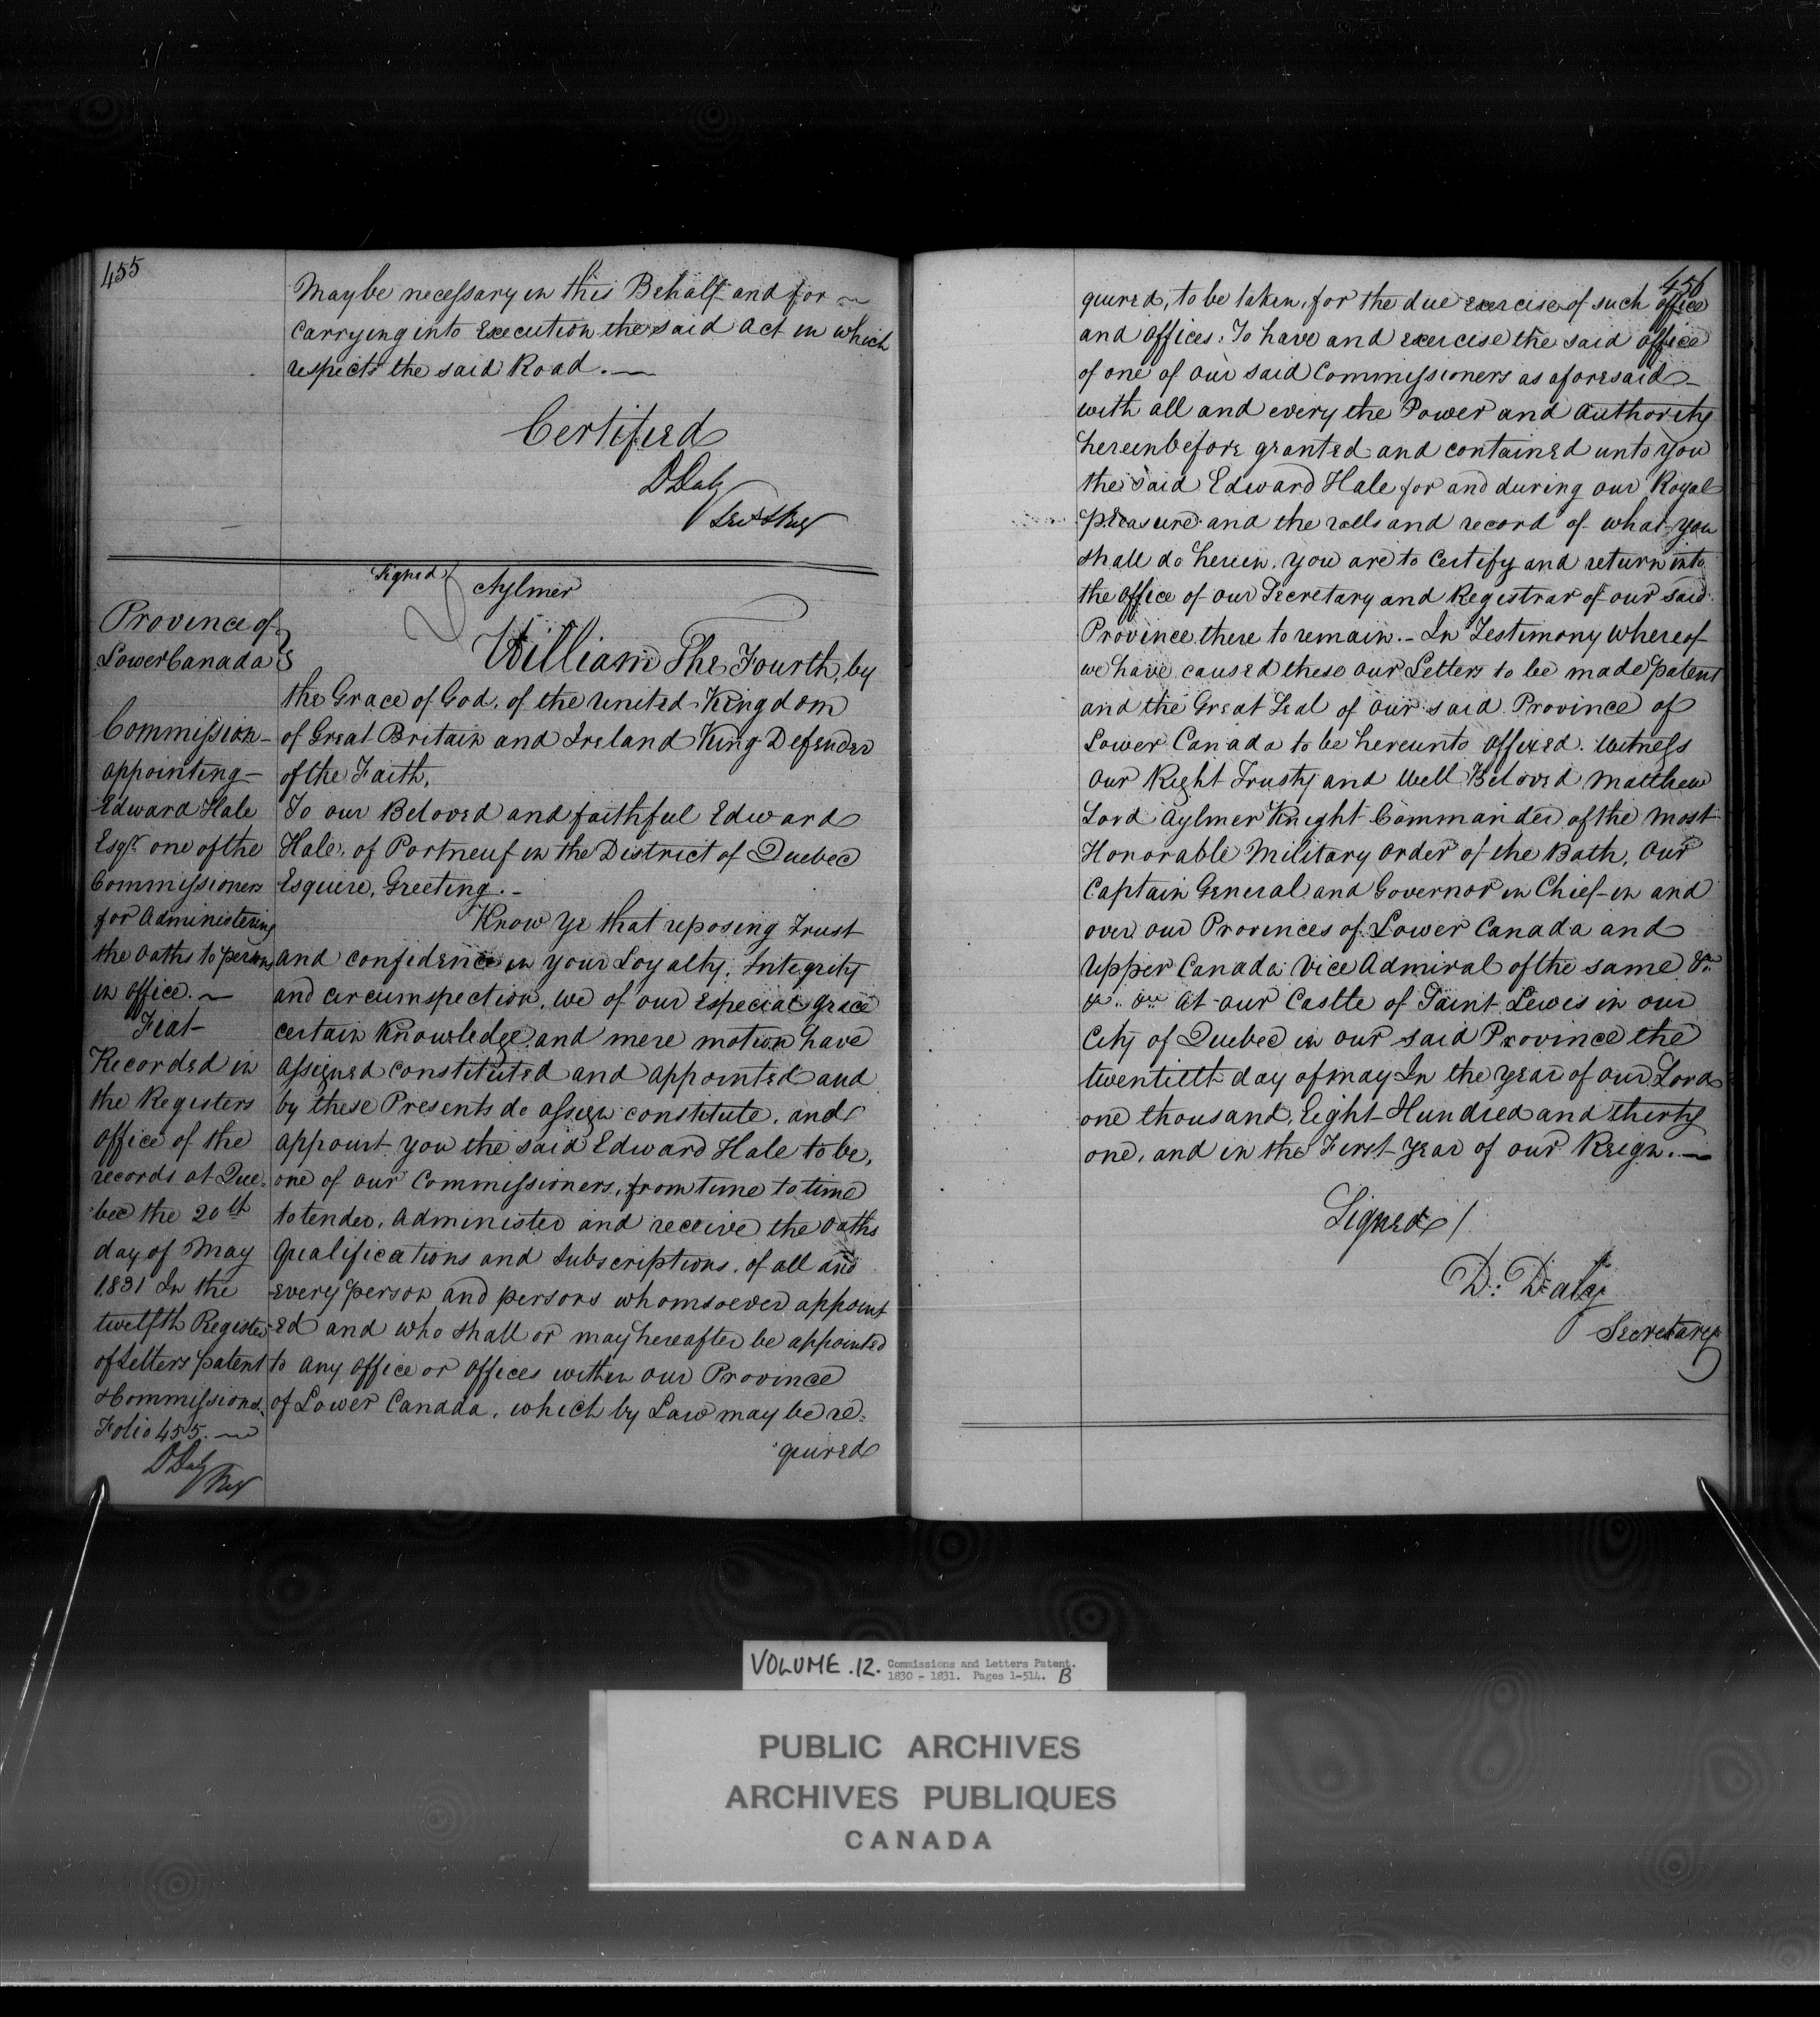 455
May be necessary in this Behalf and for
Carrying into Execution the said Act in which
respects the said Road.
Certified
DDaly
Province of
Lower Canada
Commission
appointing
Edward Hale
Esqr. one of the
Commissioners
for Administering
the Oaths to persons
in office.
Fiat
Recorded in
the Registers
office of the
records at Que=
bec the 20th
day of May
1831 In the
twelfth Register
of Letters patent
&Commissions.
Folio 455.
DDaly
Reg
Signed Aylmer
William The Fourth, by
the Grace of God, of the United Kingdom
of Great Britain and Ireland King Defender
of the Faith,
To our Beloved and faithful Edward
Hale, of Portneuf in the District of Quebec
Esquire, Greeting.-
Know Ye that reposing Trust
and confidence in your Loyalty, Integrity
and circumspection, we of our especial grace
certain Knowledge and mere motion have
assigned constituted and appointed and
by these Presents do assign constitute, and
appoint you the said Edward Hale to be,
one of our Commissioners, from time to time
to tender, Administer and receive the Oaths
Qualifications and Subscriptions, of all and
every person and persons whomsoever appoint
ed and who shall or may hereafter be appointed
to any office or offices within our Province
of Lower Canada, which by Law may be re=
quired
456
quired, to be taken, for the due exercise of such office
and offices: To have and exercise the said office
of one of our said Commissioners as aforesaid
with all and every the Power and Authority
hereinbefore granted and contained unto you
the said Edward Hale for and during our Royal
Pleasure and the rolls and record of what you
shall do herein, you are to Certify and return into
the office of our Secretary and Registrar of our said
Province there to remain.- In Testimony whereof
we have caused these our Letters to be made patent
and the Great Seal of our said Province of
Lower Canada to be hereunto affixed. Witness
Our Right Trusty and Well Beloved Matthew
Lord Aylmer Knight Commander of the most
Honorable Military Order of the Bath, Our
Captain General and Governor in Chief in and
over our Provinces of Lower Canada and
Upper Canada Vice Admiral of the same &c.
&c. &c. At our Castle of Saint Lewis in our
City of Quebec in our said Province the
twentieth day of May In the year of our Lord
one thousand, Eight Hundred and thirty
one, and in the First Year of our Reign.
Signed/
D. Daly
Secretary
VOLUME .12. Commissions and Letters Patent.
1830 - 1831. Pages 1-514. B
PUBLIC ARCHIVES
ARCHIVES PUBLIQUES
CANADA